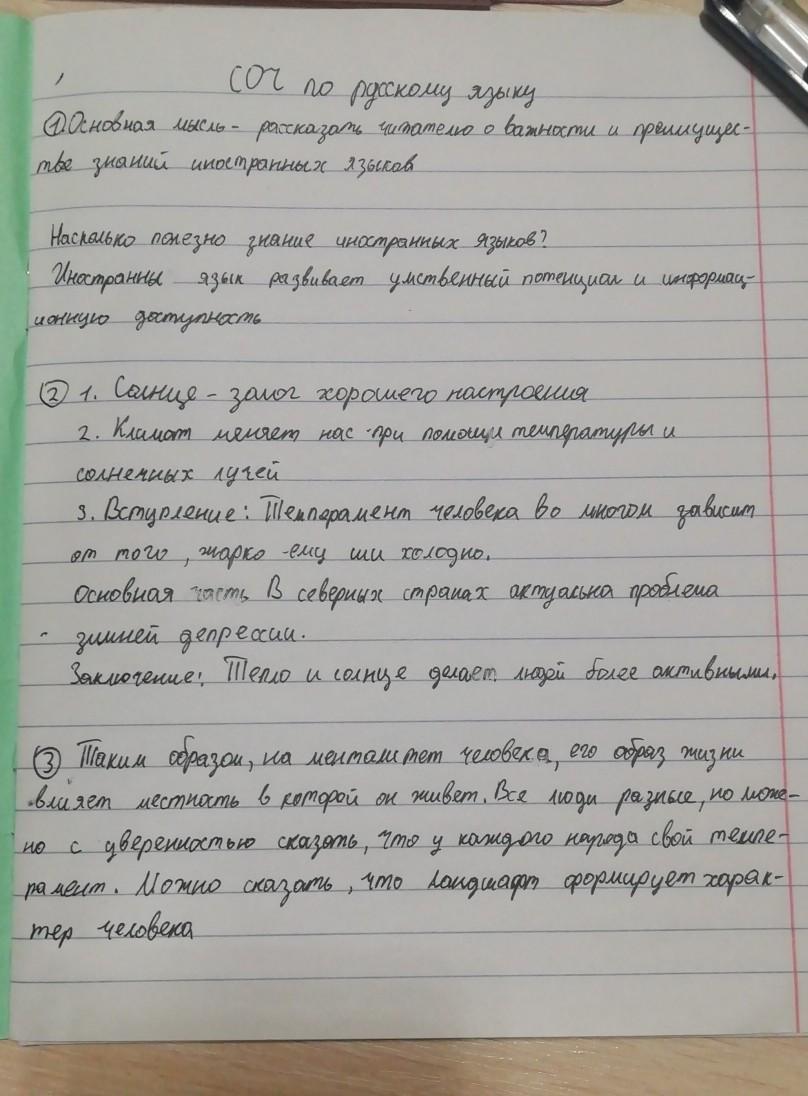 СОЧ по русскому языку
① Основная мысль - рассказать читателю о важности и преимущес-
тве знаний иностранных языков
Насколько полезно знание иностранных языков?
Иностранны язык развивает умственный потенциал и информац-
ионную доступность
② 1. Солнце - залог хорошего настроения
2. Климат меняет нас при помощи температуры и
солнечных лучей
3. Вступление: Темперамент человека во многом зависит
от того, жарко ему или холодно.
Основная часть В северных странах актуальна проблема
зимней депрессии.
Заключение: Тепло и солнце делает людей более активными.
③ Таким образом, на менталитет человека, его образ жизни
влияет местность в которой он живет. Все люди разные, но може-
но с уверенностью сказать, что у каждого народа свой темпе-
рамент. Можно сказать, что ландшафт формирует харак-
тер человека